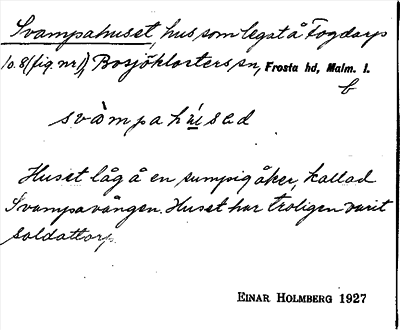 Svampahuset, hus, som legat å Fogdarp
10.8 (fig. nr 1), Bosjöklosters sn, Frosta hd, Malm. l.
f
Huset låg å en sumpig åker, kallad
Svampavången. Huset har troligen varit
soldattorp.
EINAR HOLMBERG 1927